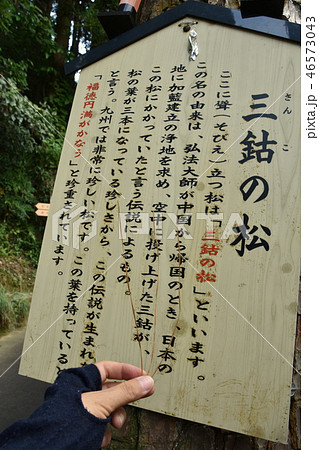 三鈷の松
さんこ
ここに聳(そびえ)立つ松は「三鈷の松」といいます。
この名の由来は、弘法大師が中国から帰国のとき、日本の
地に加藍建立の浄地を求め、空中に投げ上げた三鈷が、
この松にかかっていたと言う伝説によるもの。
松の葉が三本になっている珍しさから、この伝説が生まれ
と言う。九州では非常に珍しい松です。この葉を持っていると
「福徳円満がかなう」と珍重されています。
PIXTA
pixta.jp - 46573043